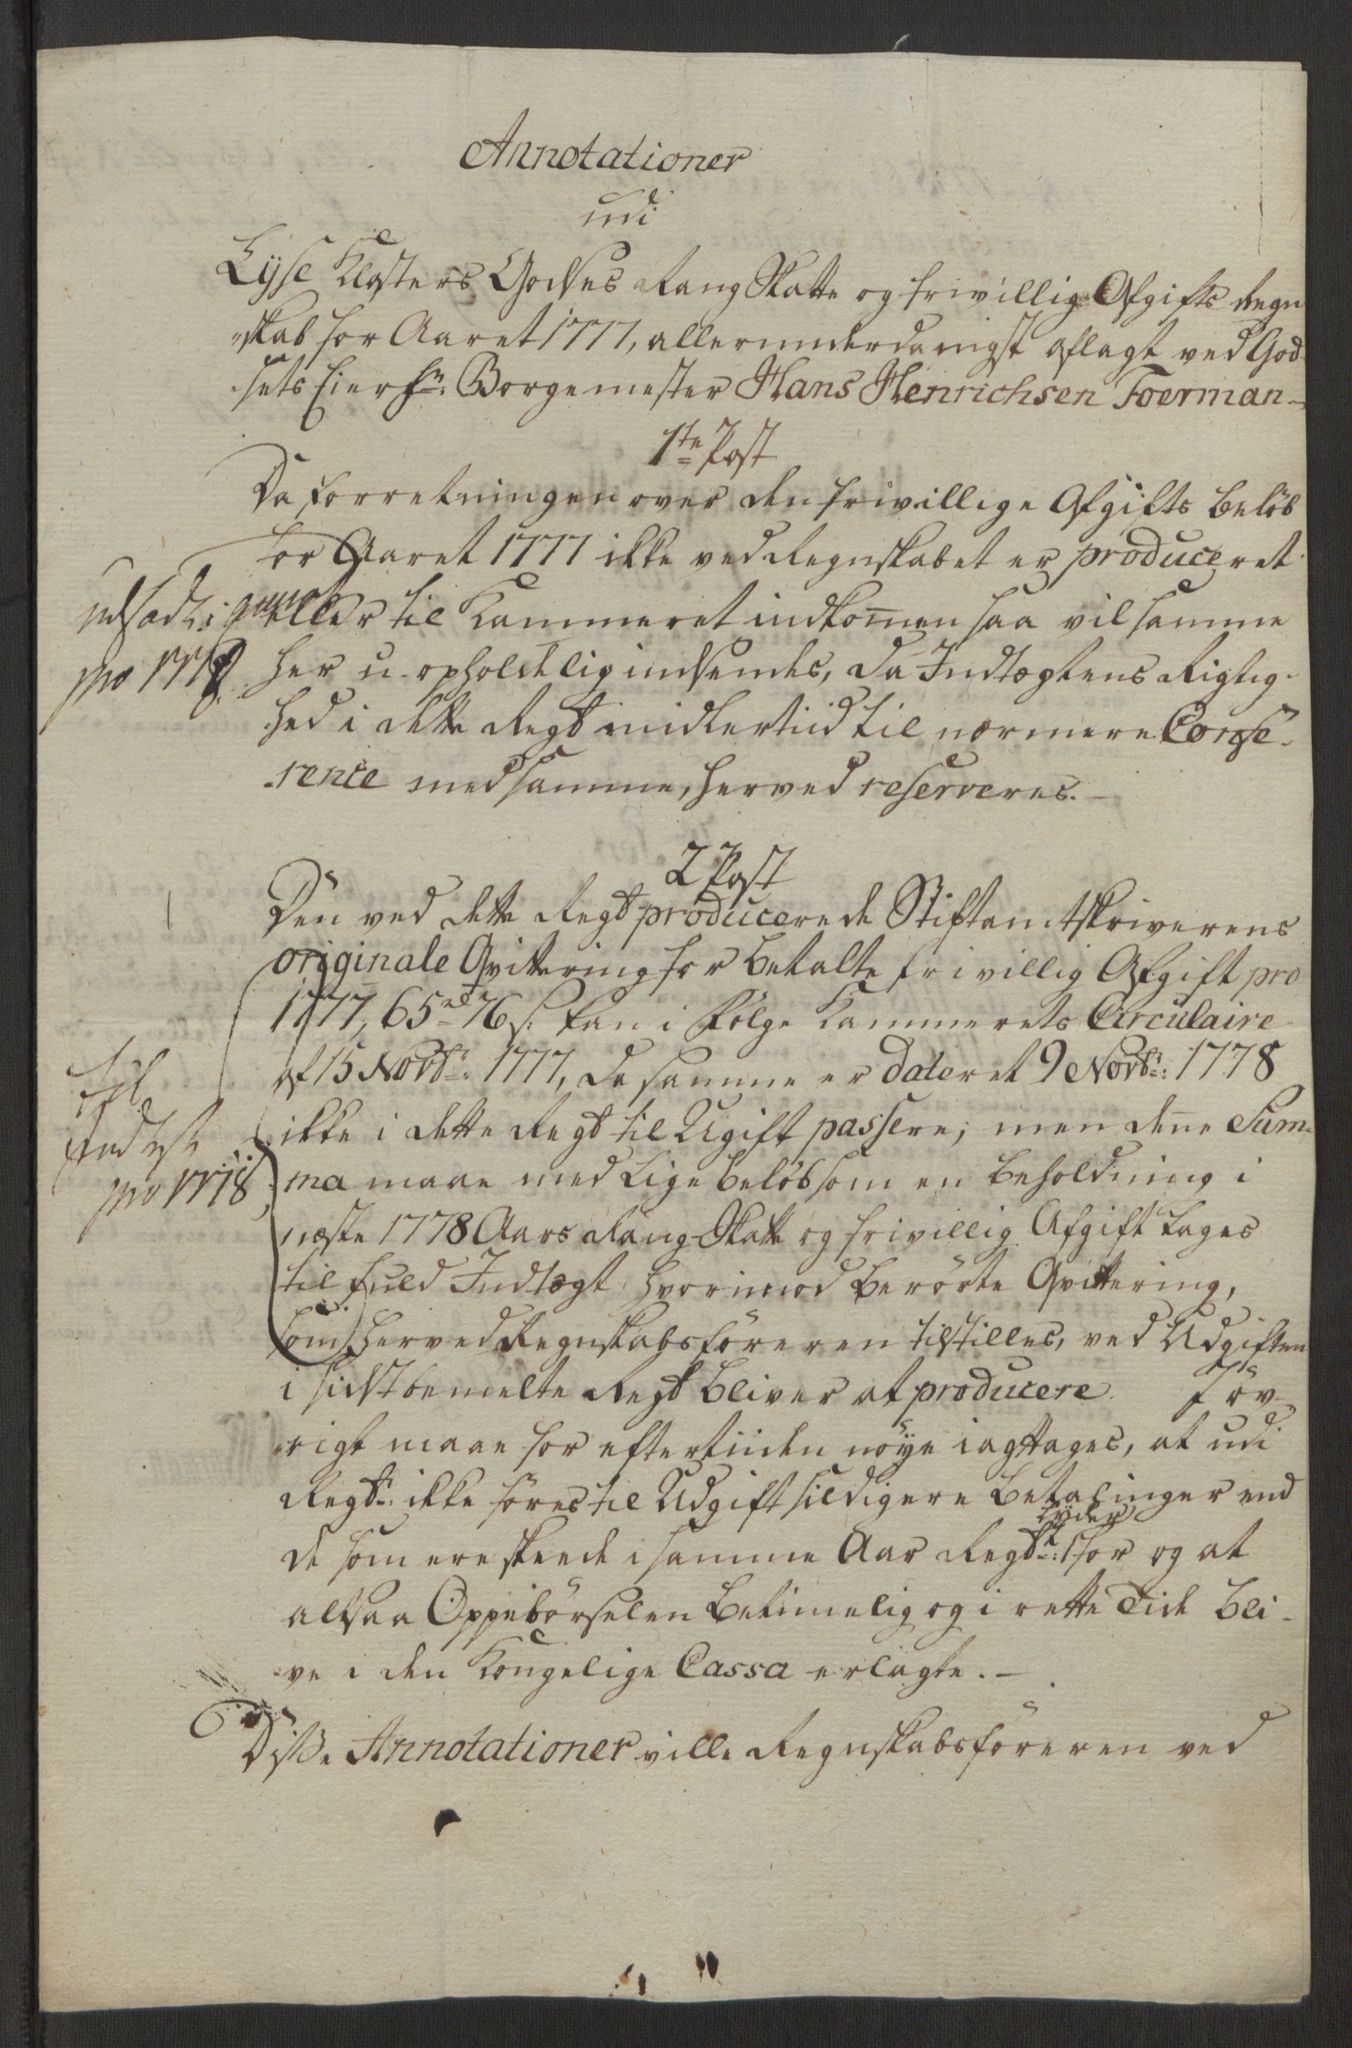 Annotationer
udi
Lyse Klosters Godses Rang Skatte og frivillig Afgifts Regn
skab for Aaret 1777, allerunderdanigst aflagt ved God-
sets Eier Hr: Borgemester Hans Henrichsen Foerman-
1ste Post
Da forretningen over den frivillige Afgifts beløb
for Aaret 1777 ikke ved Regnskabet er produceret
eller til Kammeret indkomen saa vil samme
her u-opholdelig indsendes, da Indtægtens Rigtig-
hed i dette Regsb midlertiid til nærmere Confe-
rence med samme, herved reserveres.-
udsadt:
pro 1778
2 Post
Den ved dette Regsb producerede Stiftamtskriverens
originale Qvittering for betalte frivillig Afgift pro
1777, 65 rd 76 s: kan i følge Kammerets Circulaire
af 15 Novbr: 1777, da samme er dateret 9 Novbr: 1778
ikke i dette Regsb til Ugift passere; men dene Sum-
ma maae med Lige beløb som en beholdning i
næste 1778 Aars Rang-Skatt og frivillig Afgift tages
til fuld Indtægt hvorimod berørte Qvittering,
som herved Regnskabsføreren tilstilles, ved Udgiften
i sidstbemelte Regsb bliver at producere. J øv-
rigt maae for eftertiiden nøye iagttages, at udi
Regsbr: ikke føres til Udgift sildigere betalinger end
de som ere skeede i samme Aar Regsbt: lyder for og at
altsaa Oppebørselen betimelig og i rette Tide bli-
ve i den Kongelige Cassa erlagte.-
Indtægt
pro 1778
Disse Annotationer ville Regnskabsføreren ved